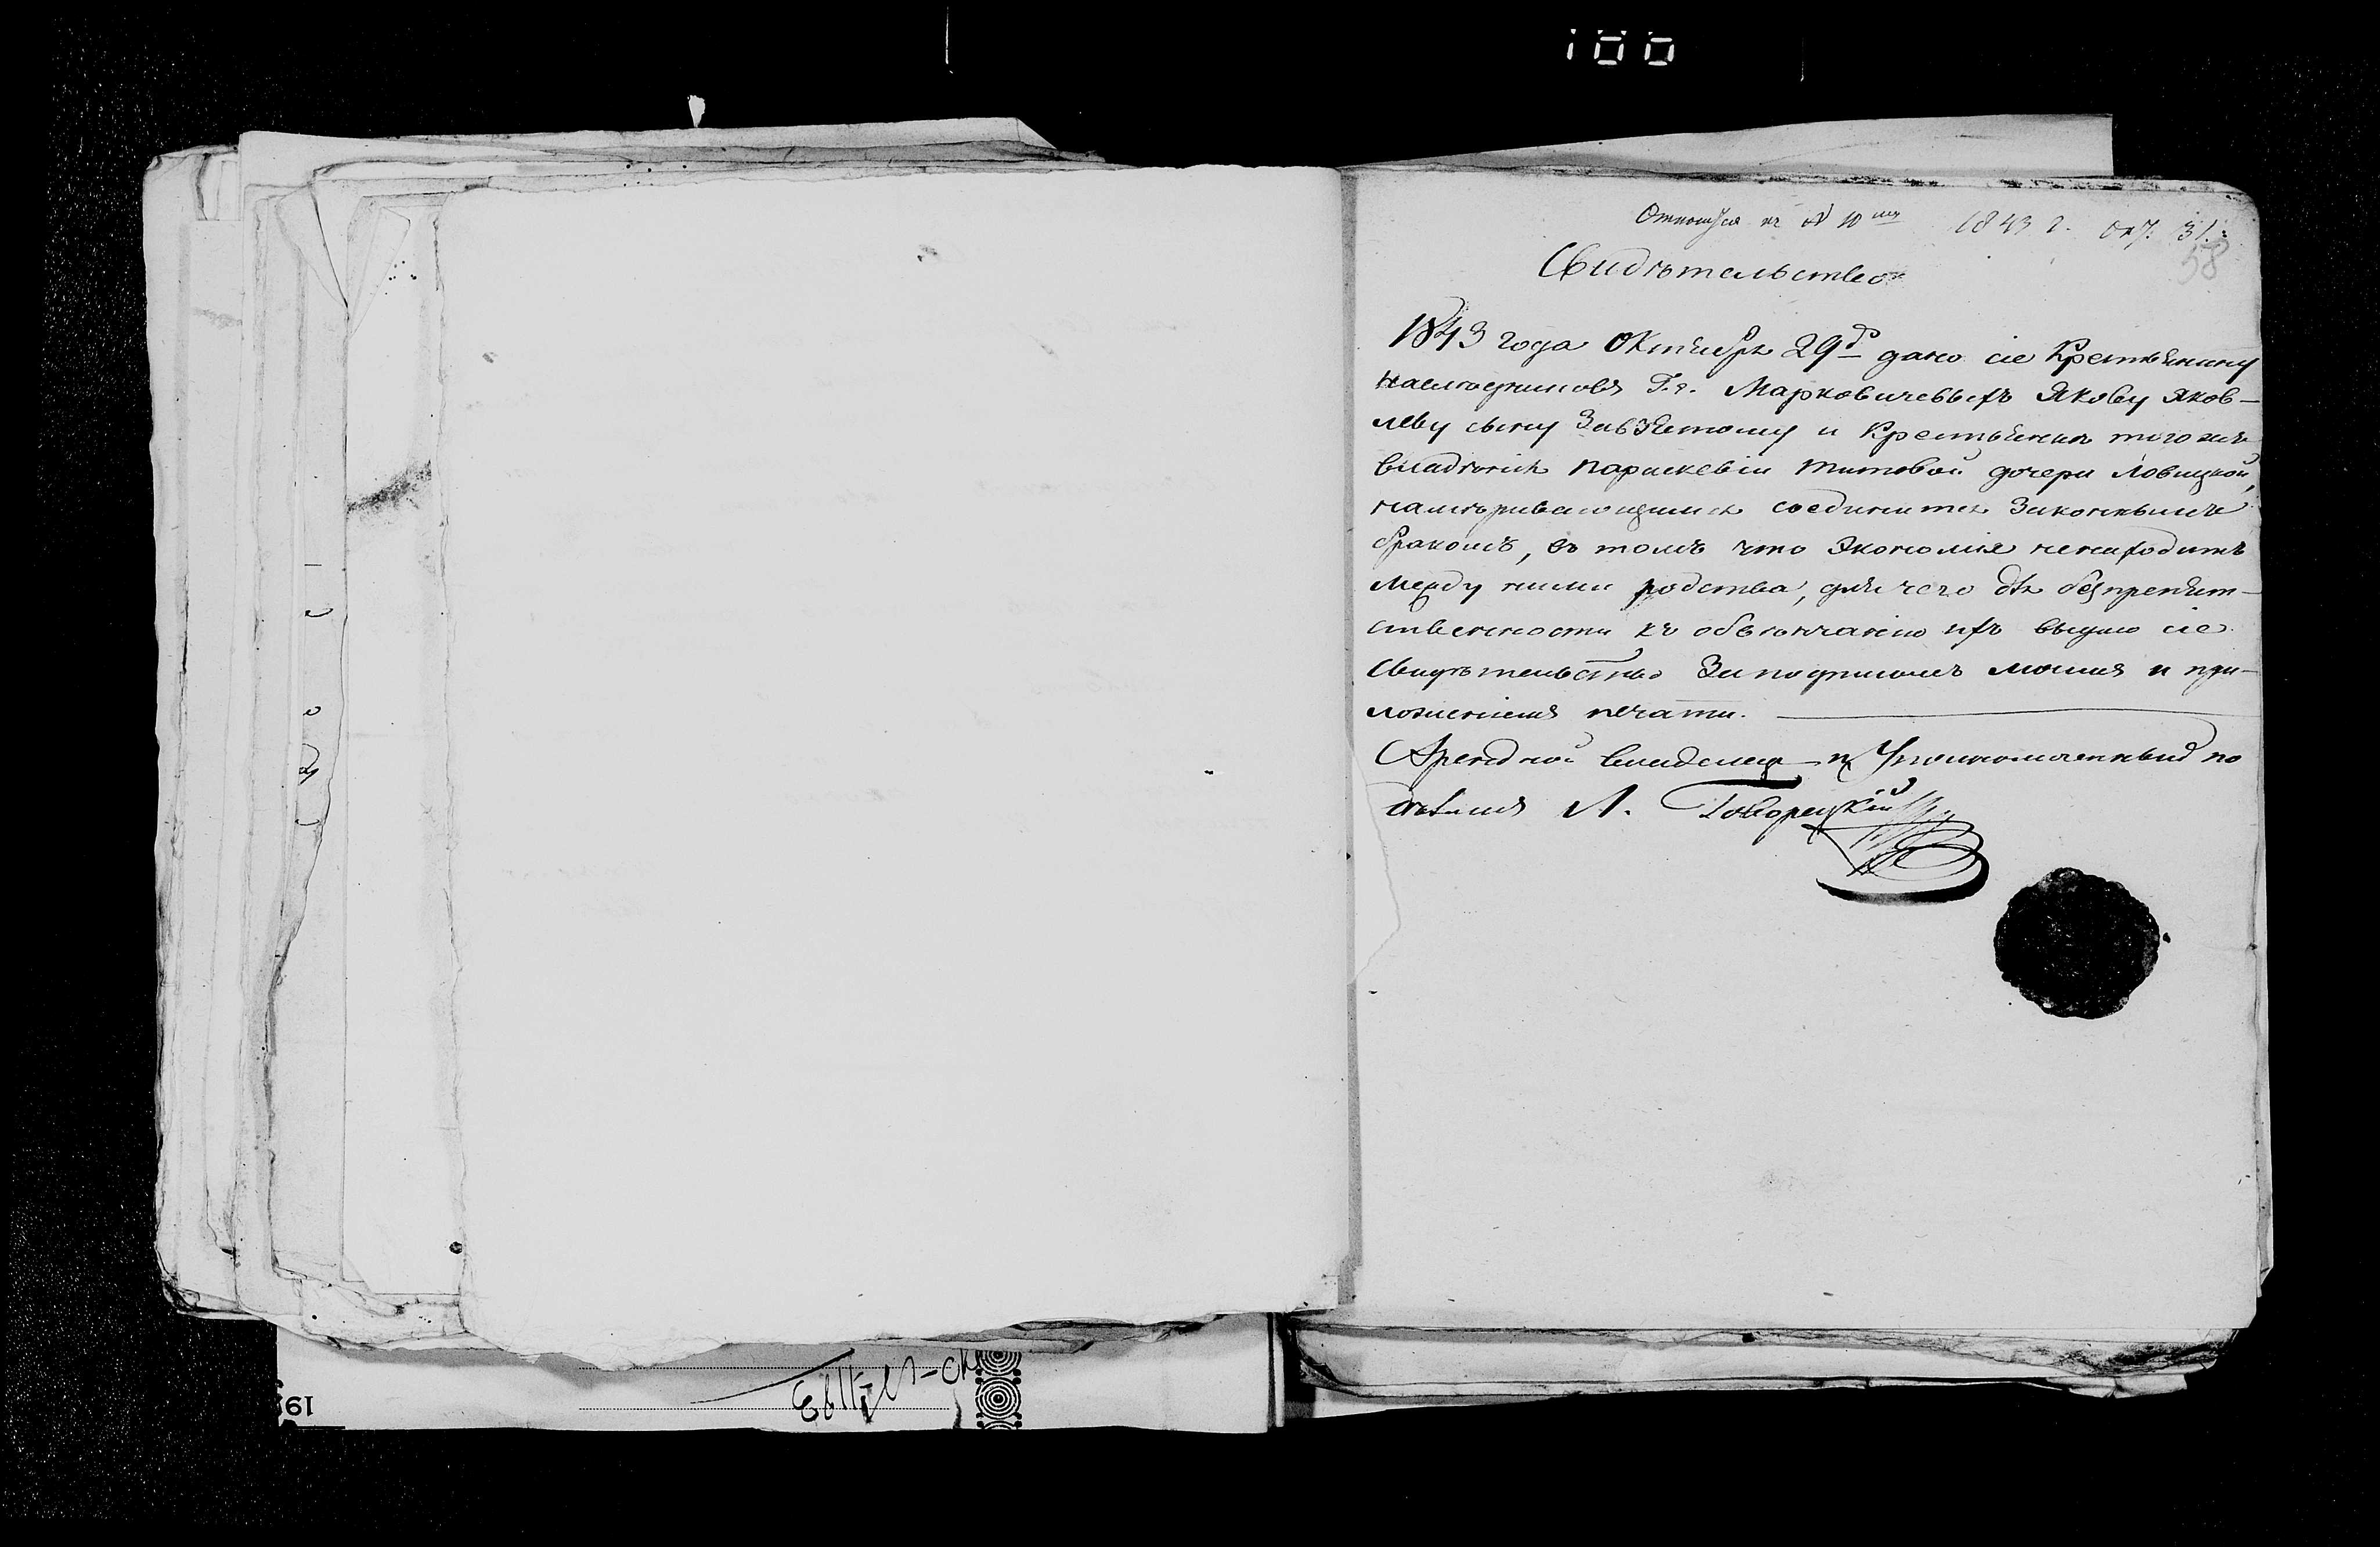 100
Относится къ № 10му 1843 г. Окт. 31.
58
Свидѣтельство
1843 года Октября 29го дано сіе Крестьянину
наслѣдниковъ Г.г. Марковичевыхъ Якову Яков-
леву сыну Завзятому и Крестьянкѣ того же
владѣнія Параскевіи Титовой дочери Ловицкой,
намѣривающимся соединится Законнымъ
бракомъ, въ томъ что Экономія ненаходитъ
между ними родства, для чего для безпрепят-
ственности къ обвѣнчанію ихъ выдано сіе
Свидѣтельство За подписомъ моимъ и при-
ложеніемъ печати.
Арендной владелец и Уполномоченный по
дѣламъ Л. Говорецкій
19